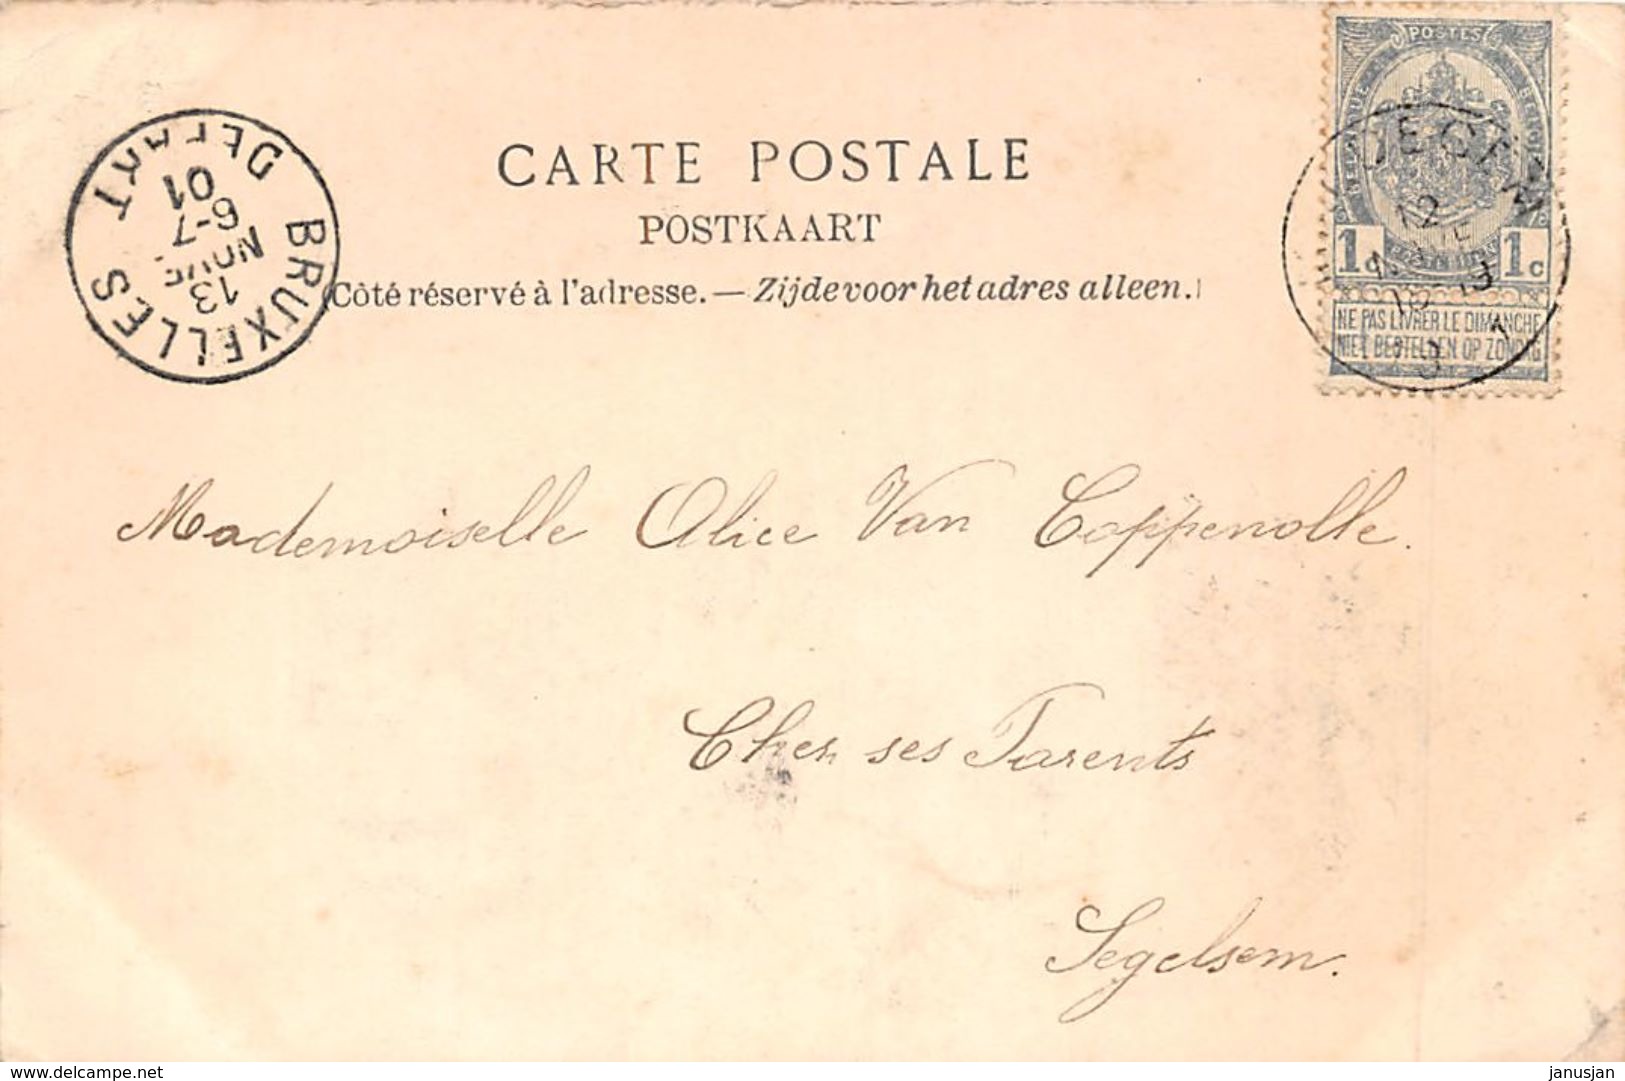 CARTE POSTALE
POSTKAART
(Côté réservé à l'adresse. — Zijde voor het adres alleen.)
BRUXELLES DEPART
13
NOVE
6-7
01
POSTES
BELGIQUE
1c 1c
NE PAS LIVRER LE DIMANCHE
NIET BESTELLEN OP ZONDAG
12
Mademoiselle Alice Van Coppenolle.
Chez ses Parents
Segelsem.
www.delcampe.net
janusjan